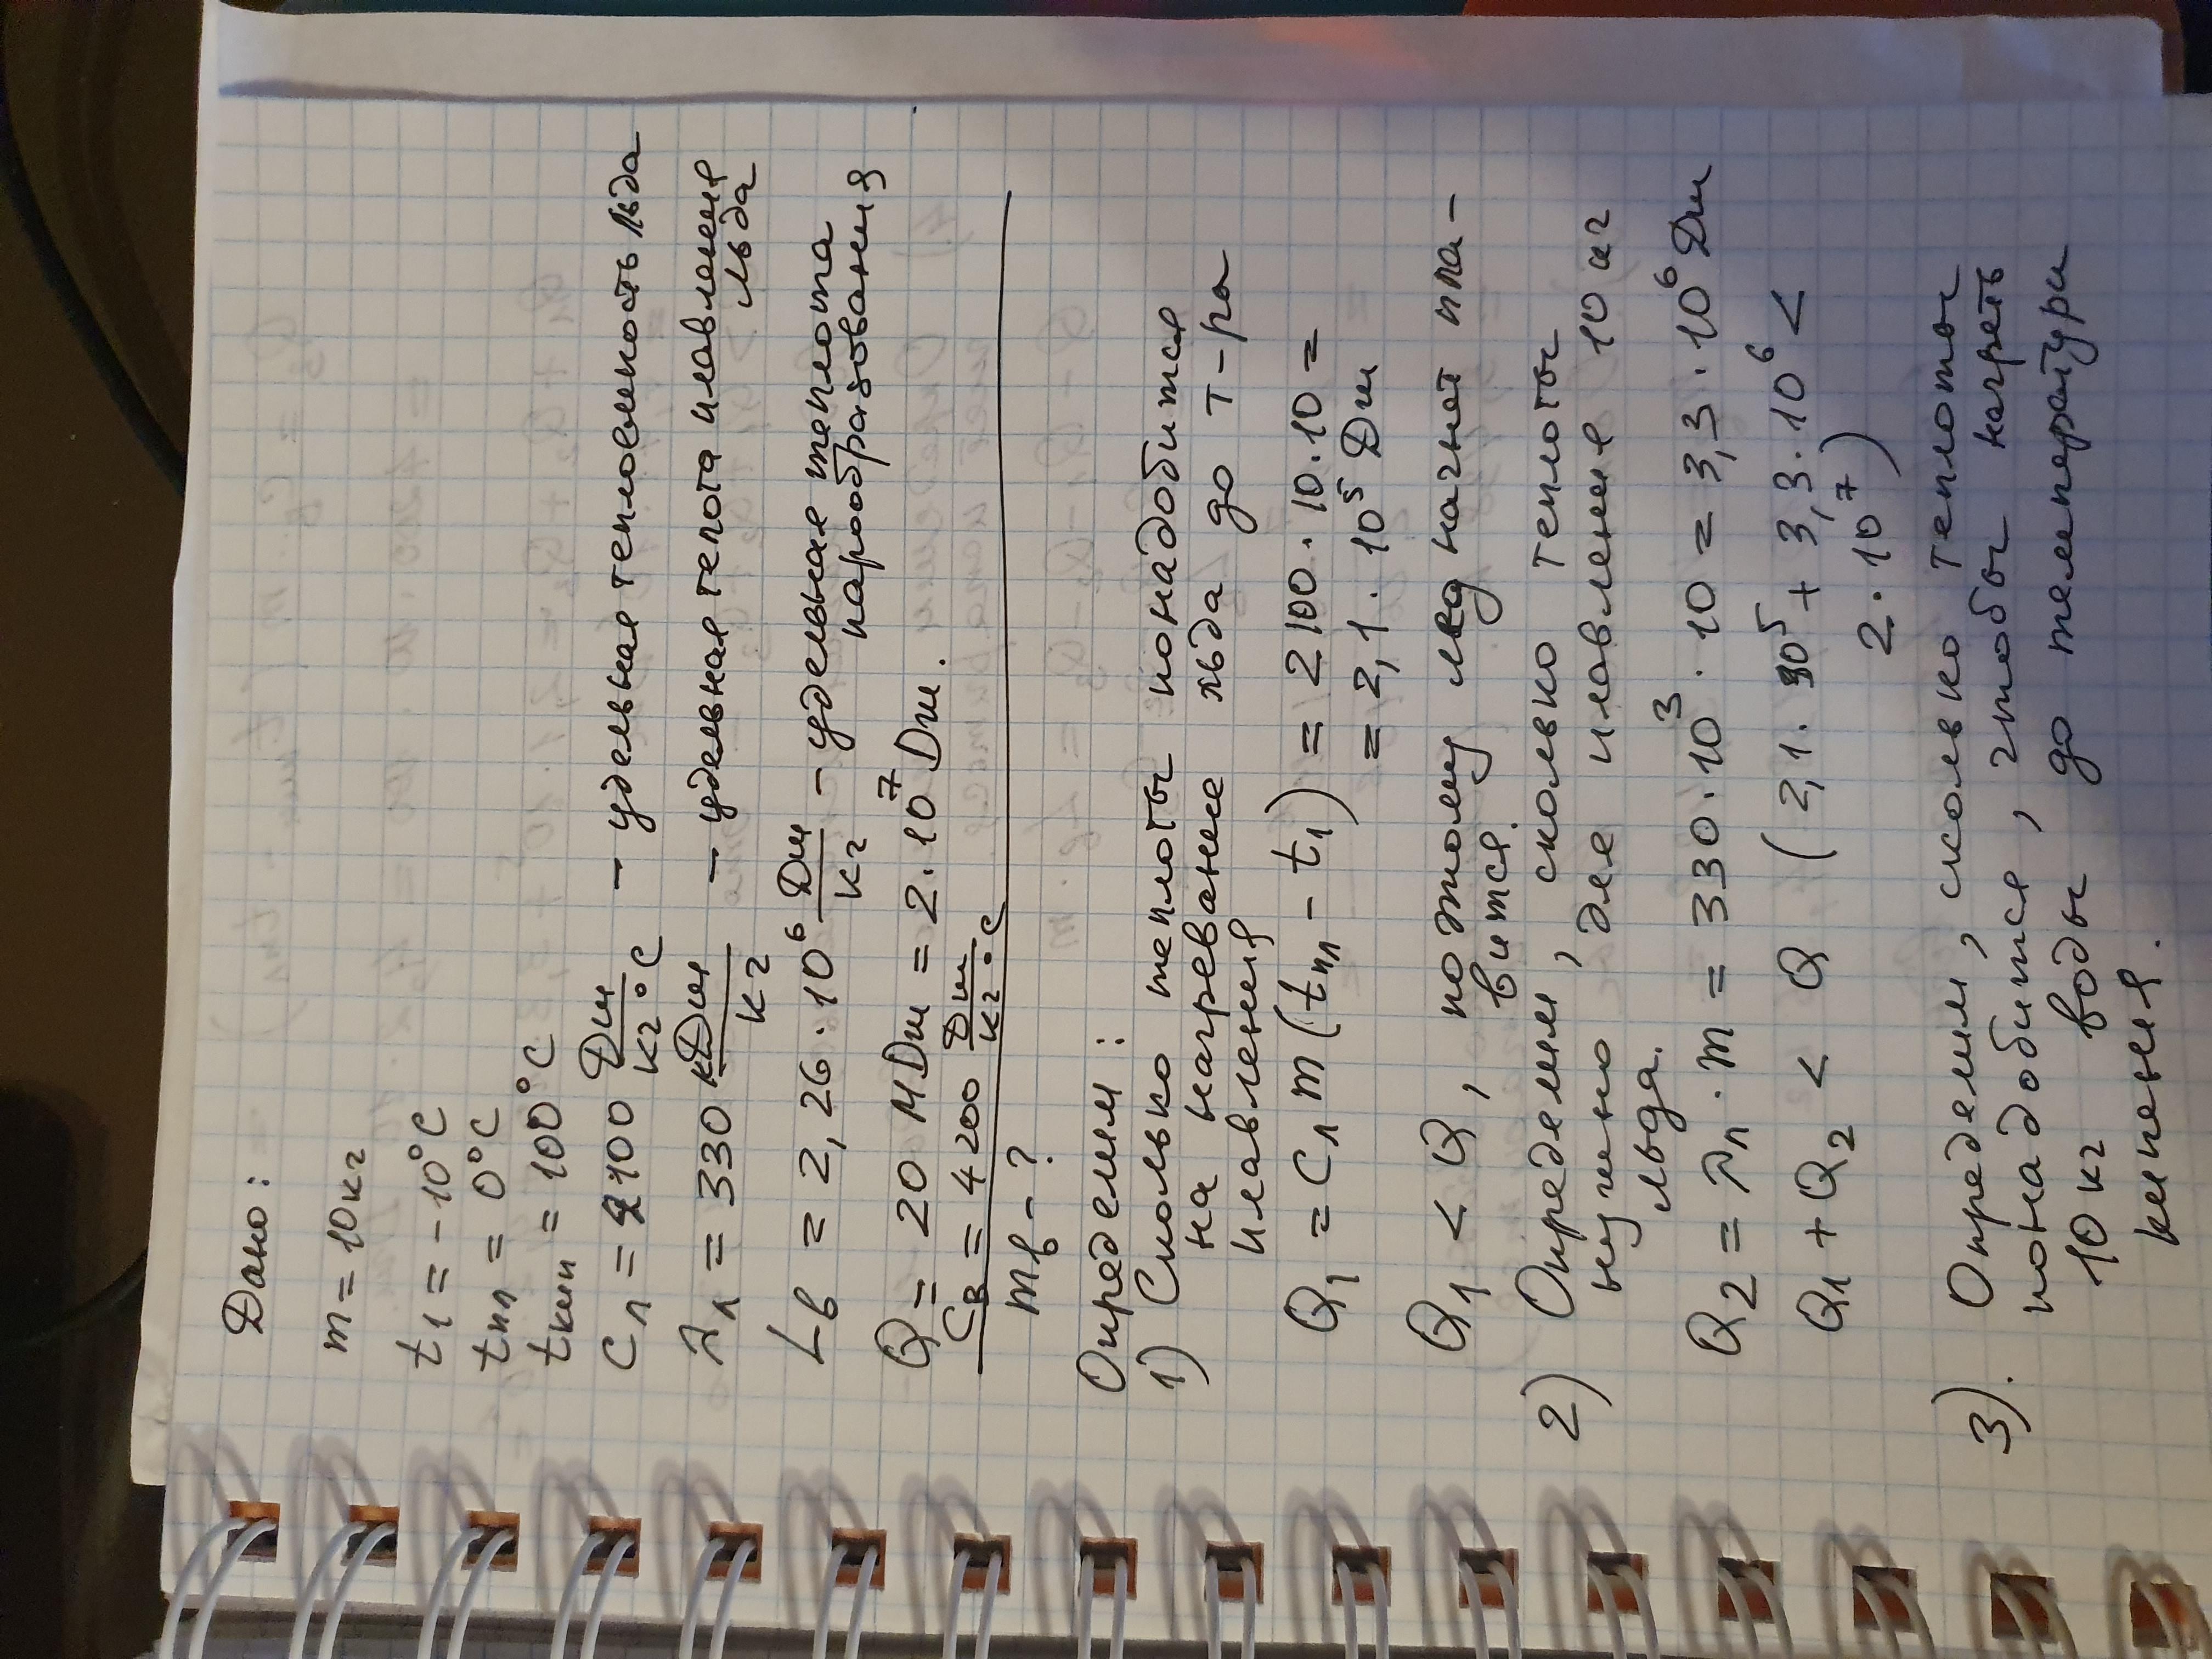 Дано:
m = 10 кг
t₁ = -10°C
tпл = 0°C
tкип = 100°C
cл = 2100 Дж/кг°C – удельная теплоёмкость льда
λл = 330 кДж/кг – удельная теплота плавления льда
Lв = 2,26·10⁶ Дж/кг – удельная теплота парообразования
Q = 20 МДж = 2·10⁷ Дж.
cв = 4200 Дж/кг°C
mв - ?
Определим:
1) Сколько теплоты понадобится
на нагревание льда до т-ры
плавления
Q₁ = cл m (tпл - t₁) = 2100·10·10 =
= 2,1·10⁵ Дж
Q₁ < Q, поэтому лед начнет пла-
вится.
2) Определим, сколько теплоты
нужно для плавления 10 кг
льда.
Q₂ = λл·m = 330·10³·10 = 3,3·10⁶ Дж
Q₁ + Q₂ < Q (2,1·10⁵ + 3,3·10⁶ <
2·10⁷)
3). Определим, сколько теплоты
понадобится, чтобы нагреть
10 кг воды до температуры
кипения.